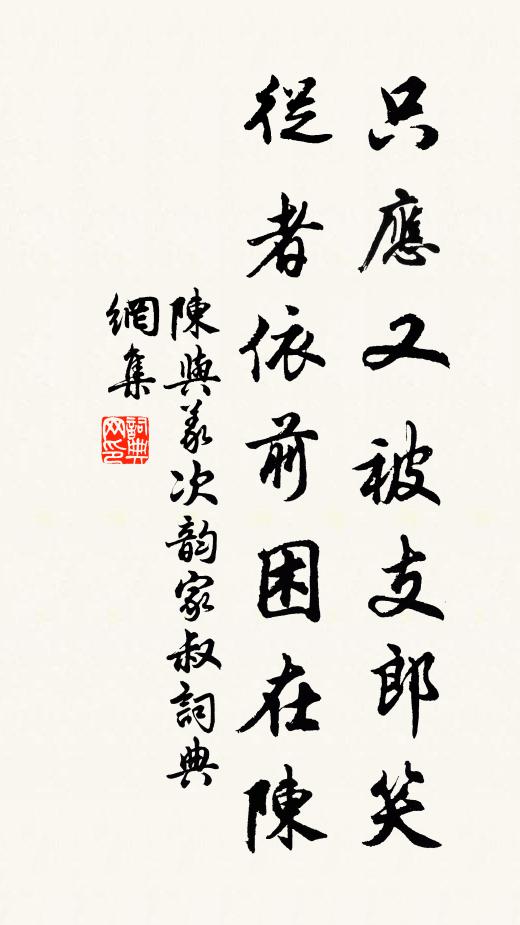 只應又被支郎笑
從者依前困在陳
陳與義次韵家叔詞典
網集
詞典
网印